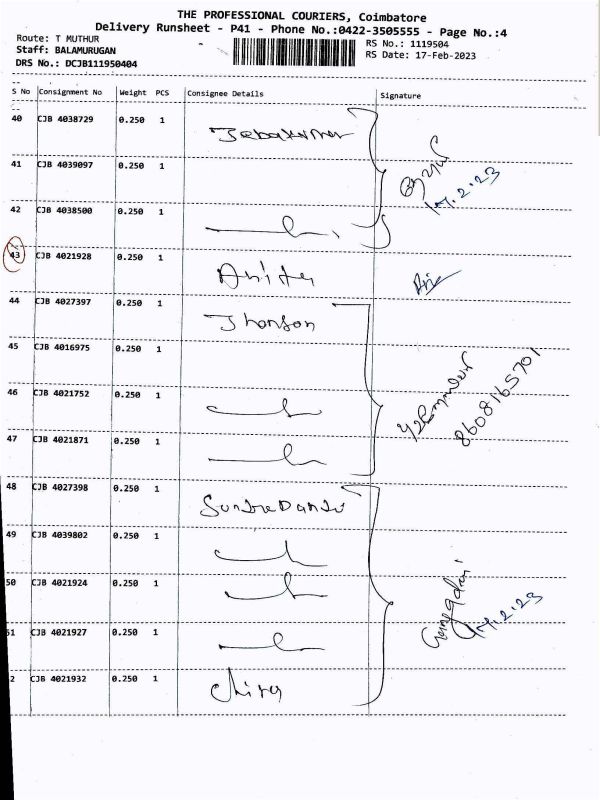 THE PROFESSIONAL COURIERS, Coimbatore
Delivery Runsheet - P41 - Phone No.:0422-3505555 - Page No.:4
Route: T MUTHUR
RS No.: 1119504
Staff: BALAMURUGAN
RS Date: 17-Feb-2023
DRS No.: DCJB111950404
S No Consignment No Weight PCS Consignee Details Signature
40 CJB 4038729 0.250 1 Jebakumar
41 CJB 4039097 0.250 1
17.2.23
42 CJB 4038500 0.250 1
43 CJB 4021928 0.250 1 Anitha
44 CJB 4027397 0.250 1 Jhonson
45 CJB 4016975 0.250 1
8608165701
46 CJB 4021752 0.250 1
47 CJB 4021871 0.250 1
48 CJB 4027398 0.250 1
49 CJB 4039802 0.250 1
50 CJB 4021924 0.250 1
17.2.23
51 CJB 4021927 0.250 1
2 CJB 4021932 0.250 1